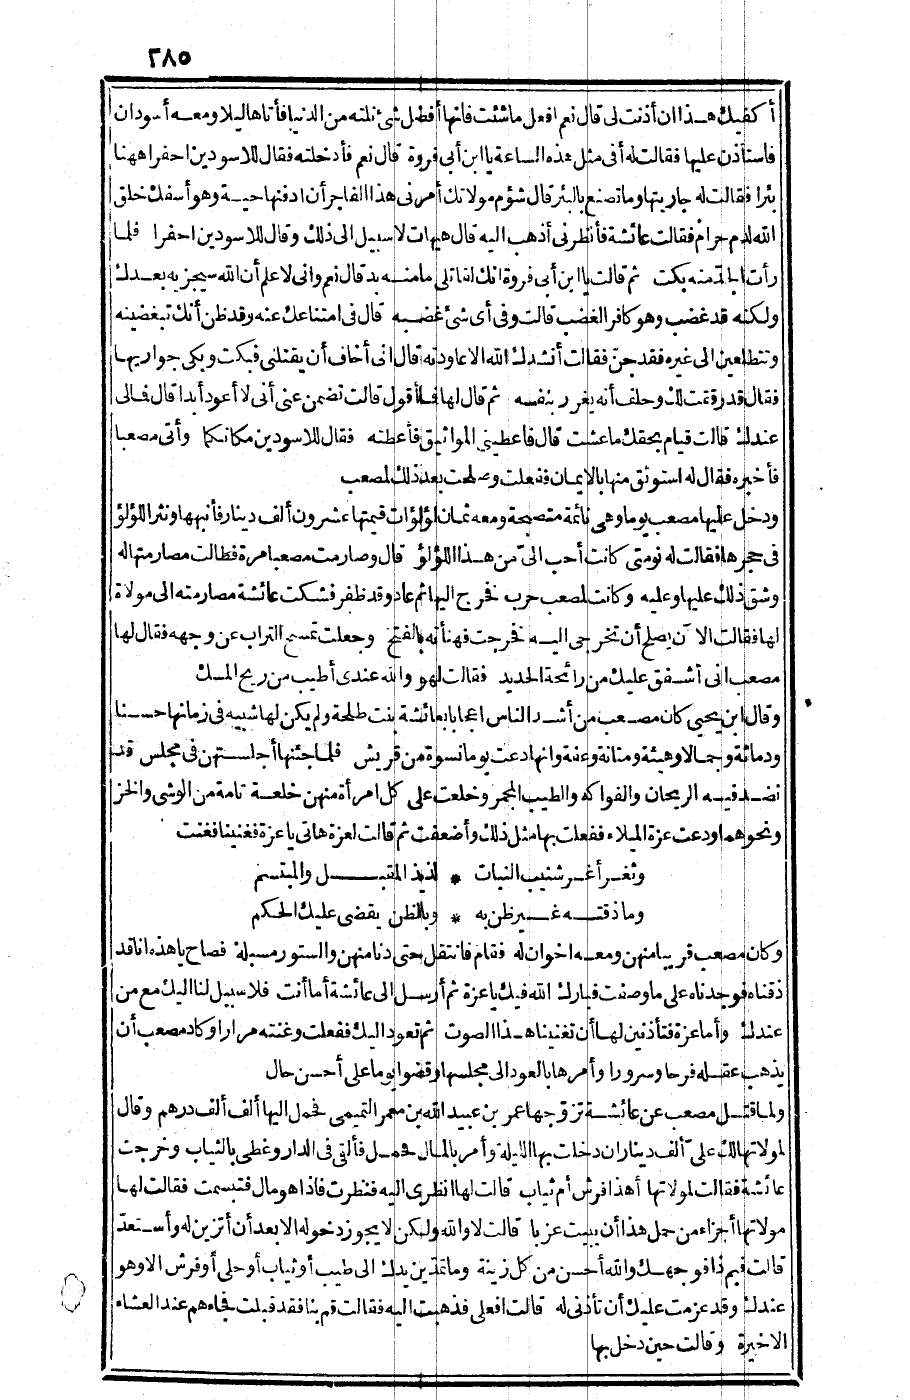 ٢٨٥
أكفيك هذا ان أذنت لى قال نعم افعل ما شئت فانها أفضل شئ نلته من الدنيا فأتاها ليلا ومعه أسودان
فاستأذن عليها فقالت له أفى مثل هذه الساعة يا ابن أبى فروة قال نعم فأدخلته فقال للاسودين احفرا ههنا
بئرا فقالت له جاريتها وما تصنع بالبئر قال شؤم مولاتك أمرنى هذا الفاجر أن ادفنها حية وهو أسفك خلق
الله لدم حرام فقالت عائشة فأنظرنى أذهب اليه قال هيهات لا سبيل الى ذلك وقال للاسودين احفرا فلما
رأت الجد منه بكت ثم قالت يا ابن أبى فروة انك لقاتلى ما منه بد قال نعم وانى لاعلم أن الله سيجزيه بعدك
ولكنه قد غضب وهو كافر الغضب قالت وفى أى شئ غضبه قال فى امتناعك عنه وقد ظن أنك تبغضينه
وتتطلعين الى غيره فقد جن فقالت أنشدك الله الا عاودته قال انى أخاف أن يقتلنى فبكت وبكى جواريها
فقال قد رققت لك وحلف أنه يغرر بنفسه ثم قال لها فما أقول قالت تضمن عنى أنى لا أعود أبدا قال فمالى
عندك قالت قيام بحقك ما عشت قال فاعطينى المواثيق فأعطته فقال للاسودين مكانكما وأتى مصعبا
فأخبره فقال له استوثق منها بالايمان ففعلت وصلحت بعد ذلك لمصعب
ودخل عليها مصعب يوما وهى نائمة متصبحة ومعه ثمان لؤلؤات قيمتها عشرون ألف دينار فأنبهها ونثر اللؤلؤ
فى حجرها فقالت له نومتى كانت أحب الىّ من هذا اللؤلؤ قال وصارمت مصعبا مرة فطالت مصارمتها له
وشق ذلك عليها وعليه وكانت لمصعب حرب فخرج اليها ثم عاد وقد ظفر فشكت عائشة مصارمته الى مولاة
لها فقالت الآن يصلح أن تخرجى اليه فخرجت فهنأته بالفتح وجعلت تمسح التراب عن وجهه فقال لها
مصعب انى أشفق عليك من رائحة الحديد فقالت لهو والله عندى أطيب من ريح المسك
وقال ابن يحيى كان مصعب من أشد الناس اعجابا بعائشة بنت طلحة ولم يكن لها شبيه فى زمانها حسنا
ودماثة وجمالا وهيئة ومتانة وعفة وانها دعت يوما نسوة من قريش فلما جئنها أجلستهن فى مجلس قد
نضد فيه الريحان والفواكه والطيب المجمر وخلعت على كل امرأة منهن خلعة تامة من الوشى والخز
ونحوهما ودعت عزة الميلاء ففعلت بها مثل ذلك وأضعفت ثم قالت لعزة هاتى يا عزة فغنينا فغنت
وثغر أغر شنيب النبات * لذيذ المقبل والمبتسم
وما ذقته غير ظن به * وبالظن يقضى عليك الحكم
وكان مصعب قريبا منهن ومعه اخوان له فقام فانتقل حتى دنا منهن والستور مسبلة فصاح يا هذه انا قد
ذقناه فوجدناه على ما وصفت فبارك الله فيك يا عزة ثم أرسل الى عائشة أما أنت فلا سبيل لنا اليك مع من
عندك وأما عزة فتأذنين لها أن تغنينا هذا الصوت ثم تعود اليك ففعلت وغنته مرارا وكاد مصعب أن
يذهب عقله فرحا وسرورا وأمرها بالعود الى مجلسها وقضوا يوما على أحسن حال
ولما قتل مصعب عن عائشة تزوجها عمر بن عبيد الله بن معمر التيمى فحمل اليها ألف ألف درهم وقال
لمولاتها لك علىّ ألف دينار ان دخلت بها الليلة وأمر بالمال فحمل فألقى فى الدار وغطى بالثياب وخرجت
عائشة فقالت لمولاتها أهذا فرش أم ثياب قالت لها انظرى اليه فنظرت فاذا هو مال فتبسمت فقالت لها
مولاتها أجزاء من حمل هذا أن يبيت عزبا قالت لا والله ولكن لا يجوز دخوله الا بعد أن أتزين له وأستعدّ
قالت فيم ذا فوجهك والله أحسن من كل زينة وما تمدين يدك الى طيب أو ثياب أو حلى أو فرش الا وهو
عندك وقد عزمت عليك أن تأذنى له قالت افعلى فذهبت اليه فقالت قم بنا فقد قبلت فجاءهم عند العشاء
الاخيرة وقالت حين دخل بها